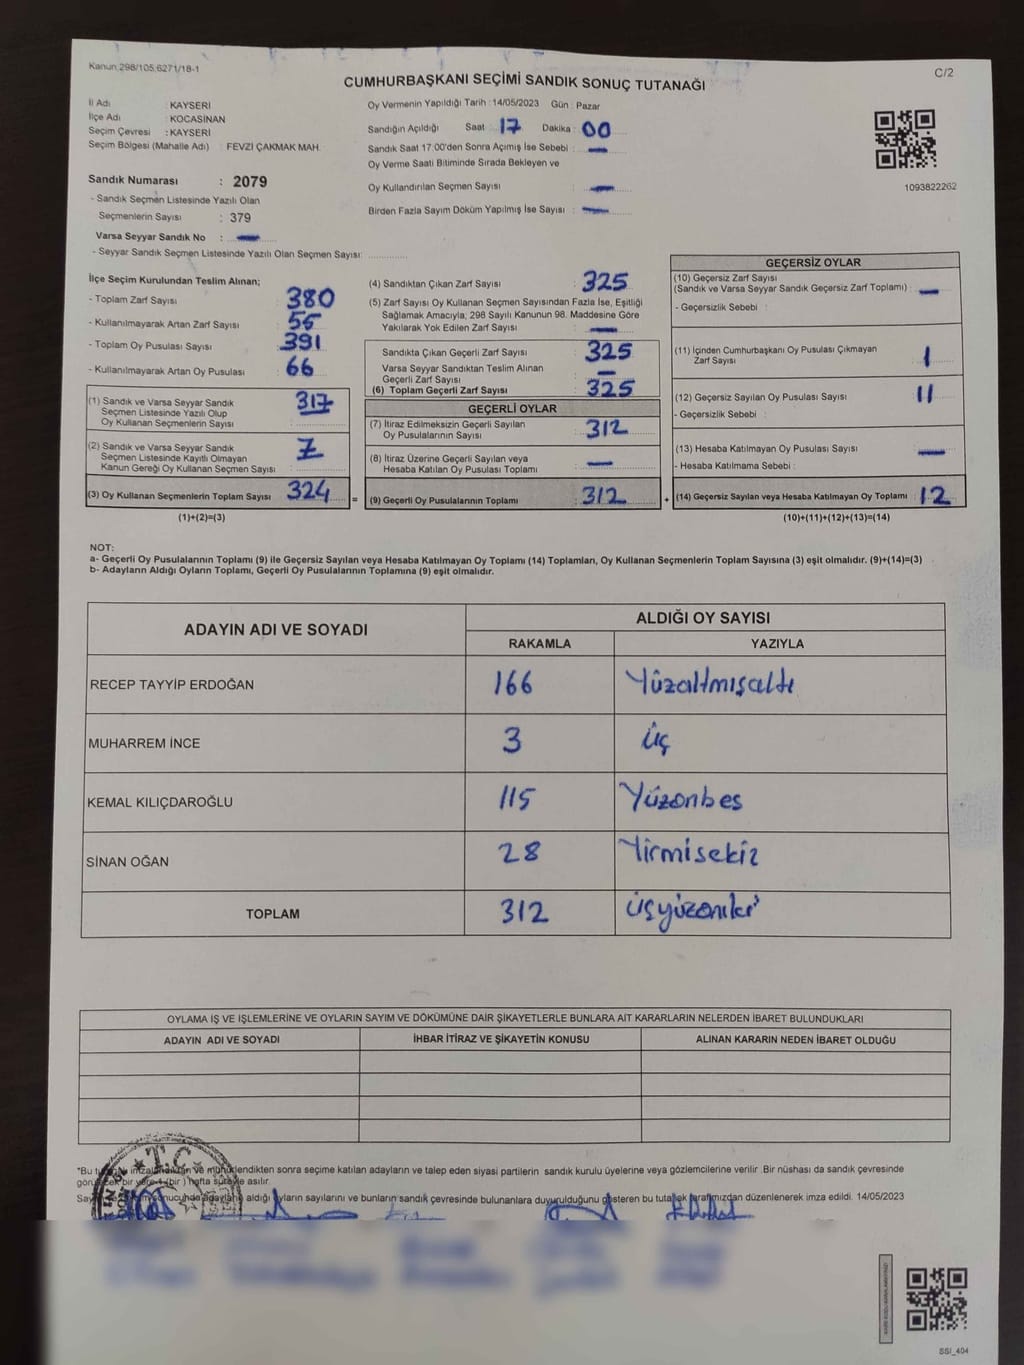 Kanun:298/105,6271/18-1
C/2
CUMHURBAŞKANI SEÇİMİ SANDIK SONUÇ TUTANAĞI
İl Adı KAYSERİ
İlçe Adı : KOCASİNAN
Seçim Çevresi : KAYSERİ
Seçim Bölgesi (Mahalle Adı) : FEVZİ ÇAKMAK MAH.
Sandık Numarası : 2079
- Sandık Seçmen Listesinde Yazılı Olan
Seçmenlerin Sayısı : 379
Varsa Seyyar Sandık No : —
- Seyyar Sandık Seçmen Listesinde Yazılı Olan Seçmen Sayısı:
Oy Vermenin Yapıldığı Tarih :14/05/2023 Gün : Pazar
Sandığın Açıldığı Saat : 17 Dakika : 00
Sandık Saat 17:00'den Sonra Açımış İse Sebebi : —
Oy Verme Saati Bitiminde Sırada Bekleyen ve
Oy Kullandırılan Seçmen Sayısı : —
Birden Fazla Sayım Döküm Yapılmış İse Sayısı : —
1093822262
İlçe Seçim Kurulundan Teslim Alınan;
- Toplam Zarf Sayısı : 380
- Kullanılmayarak Artan Zarf Sayısı : 55
- Toplam Oy Pusulası Sayısı : 391
- Kullanılmayarak Artan Oy Pusulası : 66
(1) Sandık ve Varsa Seyyar Sandık
Seçmen Listesinde Yazılı Olup
Oy Kullanan Seçmenlerin Sayısı : 317
(2) Sandık ve Varsa Seyyar Sandık
Seçmen Listesinde Kayıtlı Olmayan
Kanun Gereği Oy Kullanan Seçmen Sayısı : 7
(3) Oy Kullanan Seçmenlerin Toplam Sayısı : 324
(1)+(2)=(3)
(4) Sandıktan Çıkan Zarf Sayısı : 325
(5) Zarf Sayısı Oy Kullanan Seçmen Sayısından Fazla İse, Eşitliği
Sağlamak Amacıyla, 298 Sayılı Kanunun 98. Maddesine Göre
Yakılarak Yok Edilen Zarf Sayısı : —
Sandıkta Çıkan Geçerli Zarf Sayısı : 325
Varsa Seyyar Sandıktan Teslim Alınan
Geçerli Zarf Sayısı : —
(6) Toplam Geçerli Zarf Sayısı : 325
GEÇERLİ OYLAR
(7) İtiraz Edilmeksizin Geçerli Sayılan
Oy Pusulalarının Sayısı : 312
(8) İtiraz Üzerine Geçerli Sayılan veya
Hesaba Katılan Oy Pusulası Toplamı : —
= (9) Geçerli Oy Pusulalarının Toplamı : 312
GEÇERSİZ OYLAR
(10) Geçersiz Zarf Sayısı
(Sandık ve Varsa Seyyar Sandık Geçersiz Zarf Toplamı) : —
- Geçersizlik Sebebi :
(11) İçinden Cumhurbaşkanı Oy Pusulası Çıkmayan
Zarf Sayısı : 1
(12) Geçersiz Sayılan Oy Pusulası Sayısı : 11
- Geçersizlik Sebebi :
(13) Hesaba Katılmayan Oy Pusulası Sayısı : —
- Hesaba Katılmama Sebebi :
+ (14) Geçersiz Sayılan veya Hesaba Katılmayan Oy Toplamı : 12
(10)+(11)+(12)+(13)=(14)
NOT:
a- Geçerli Oy Pusulalarının Toplamı (9) ile Geçersiz Sayılan veya Hesaba Katılmayan Oy Toplamı (14) Toplamları, Oy Kullanan Seçmenlerin Toplam Sayısına (3) eşit olmalıdır. (9)+(14)=(3)
b- Adayların Aldığı Oyların Toplamı, Geçerli Oy Pusulalarının Toplamına (9) eşit olmalıdır.
ADAYIN ADI VE SOYADI
ALDIĞI OY SAYISI
RAKAMLA YAZIYLA
RECEP TAYYİP ERDOĞAN 166 Yüzaltmışaltı
MUHARREM İNCE 3 üç
KEMAL KILIÇDAROĞLU 115 Yüzonbes
SİNAN OĞAN 28 Yirmisekiz
TOPLAM 312 üçyüzoniki
OYLAMA İŞ VE İŞLEMLERİNE VE OYLARIN SAYIM VE DÖKÜMÜNE DAİR ŞİKAYETLERLE BUNLARA AİT KARARLARIN NELERDEN İBARET BULUNDUKLARI
ADAYIN ADI VE SOYADI İHBAR İTİRAZ VE ŞİKAYETİN KONUSU ALINAN KARARIN NEDEN İBARET OLDUĞU
T.C.
*Bu imzalandıktan ve mühürlendikten sonra seçime katılan adayların ve talep eden siyasi partilerin sandık kurulu üyelerine veya gözlemcilerine verilir .Bir nüshası da sandık çevresinde
bir yere 1 (bir ) hafta süreyle asılır.
sonucunda adayların aldığı oyların sayılarını ve bunların sandık çevresinde bulunanlara duyurulduğunu gösteren bu tutanak tarafımızdan düzenlenerek imza edildi. 14/05/2023
SSI_404